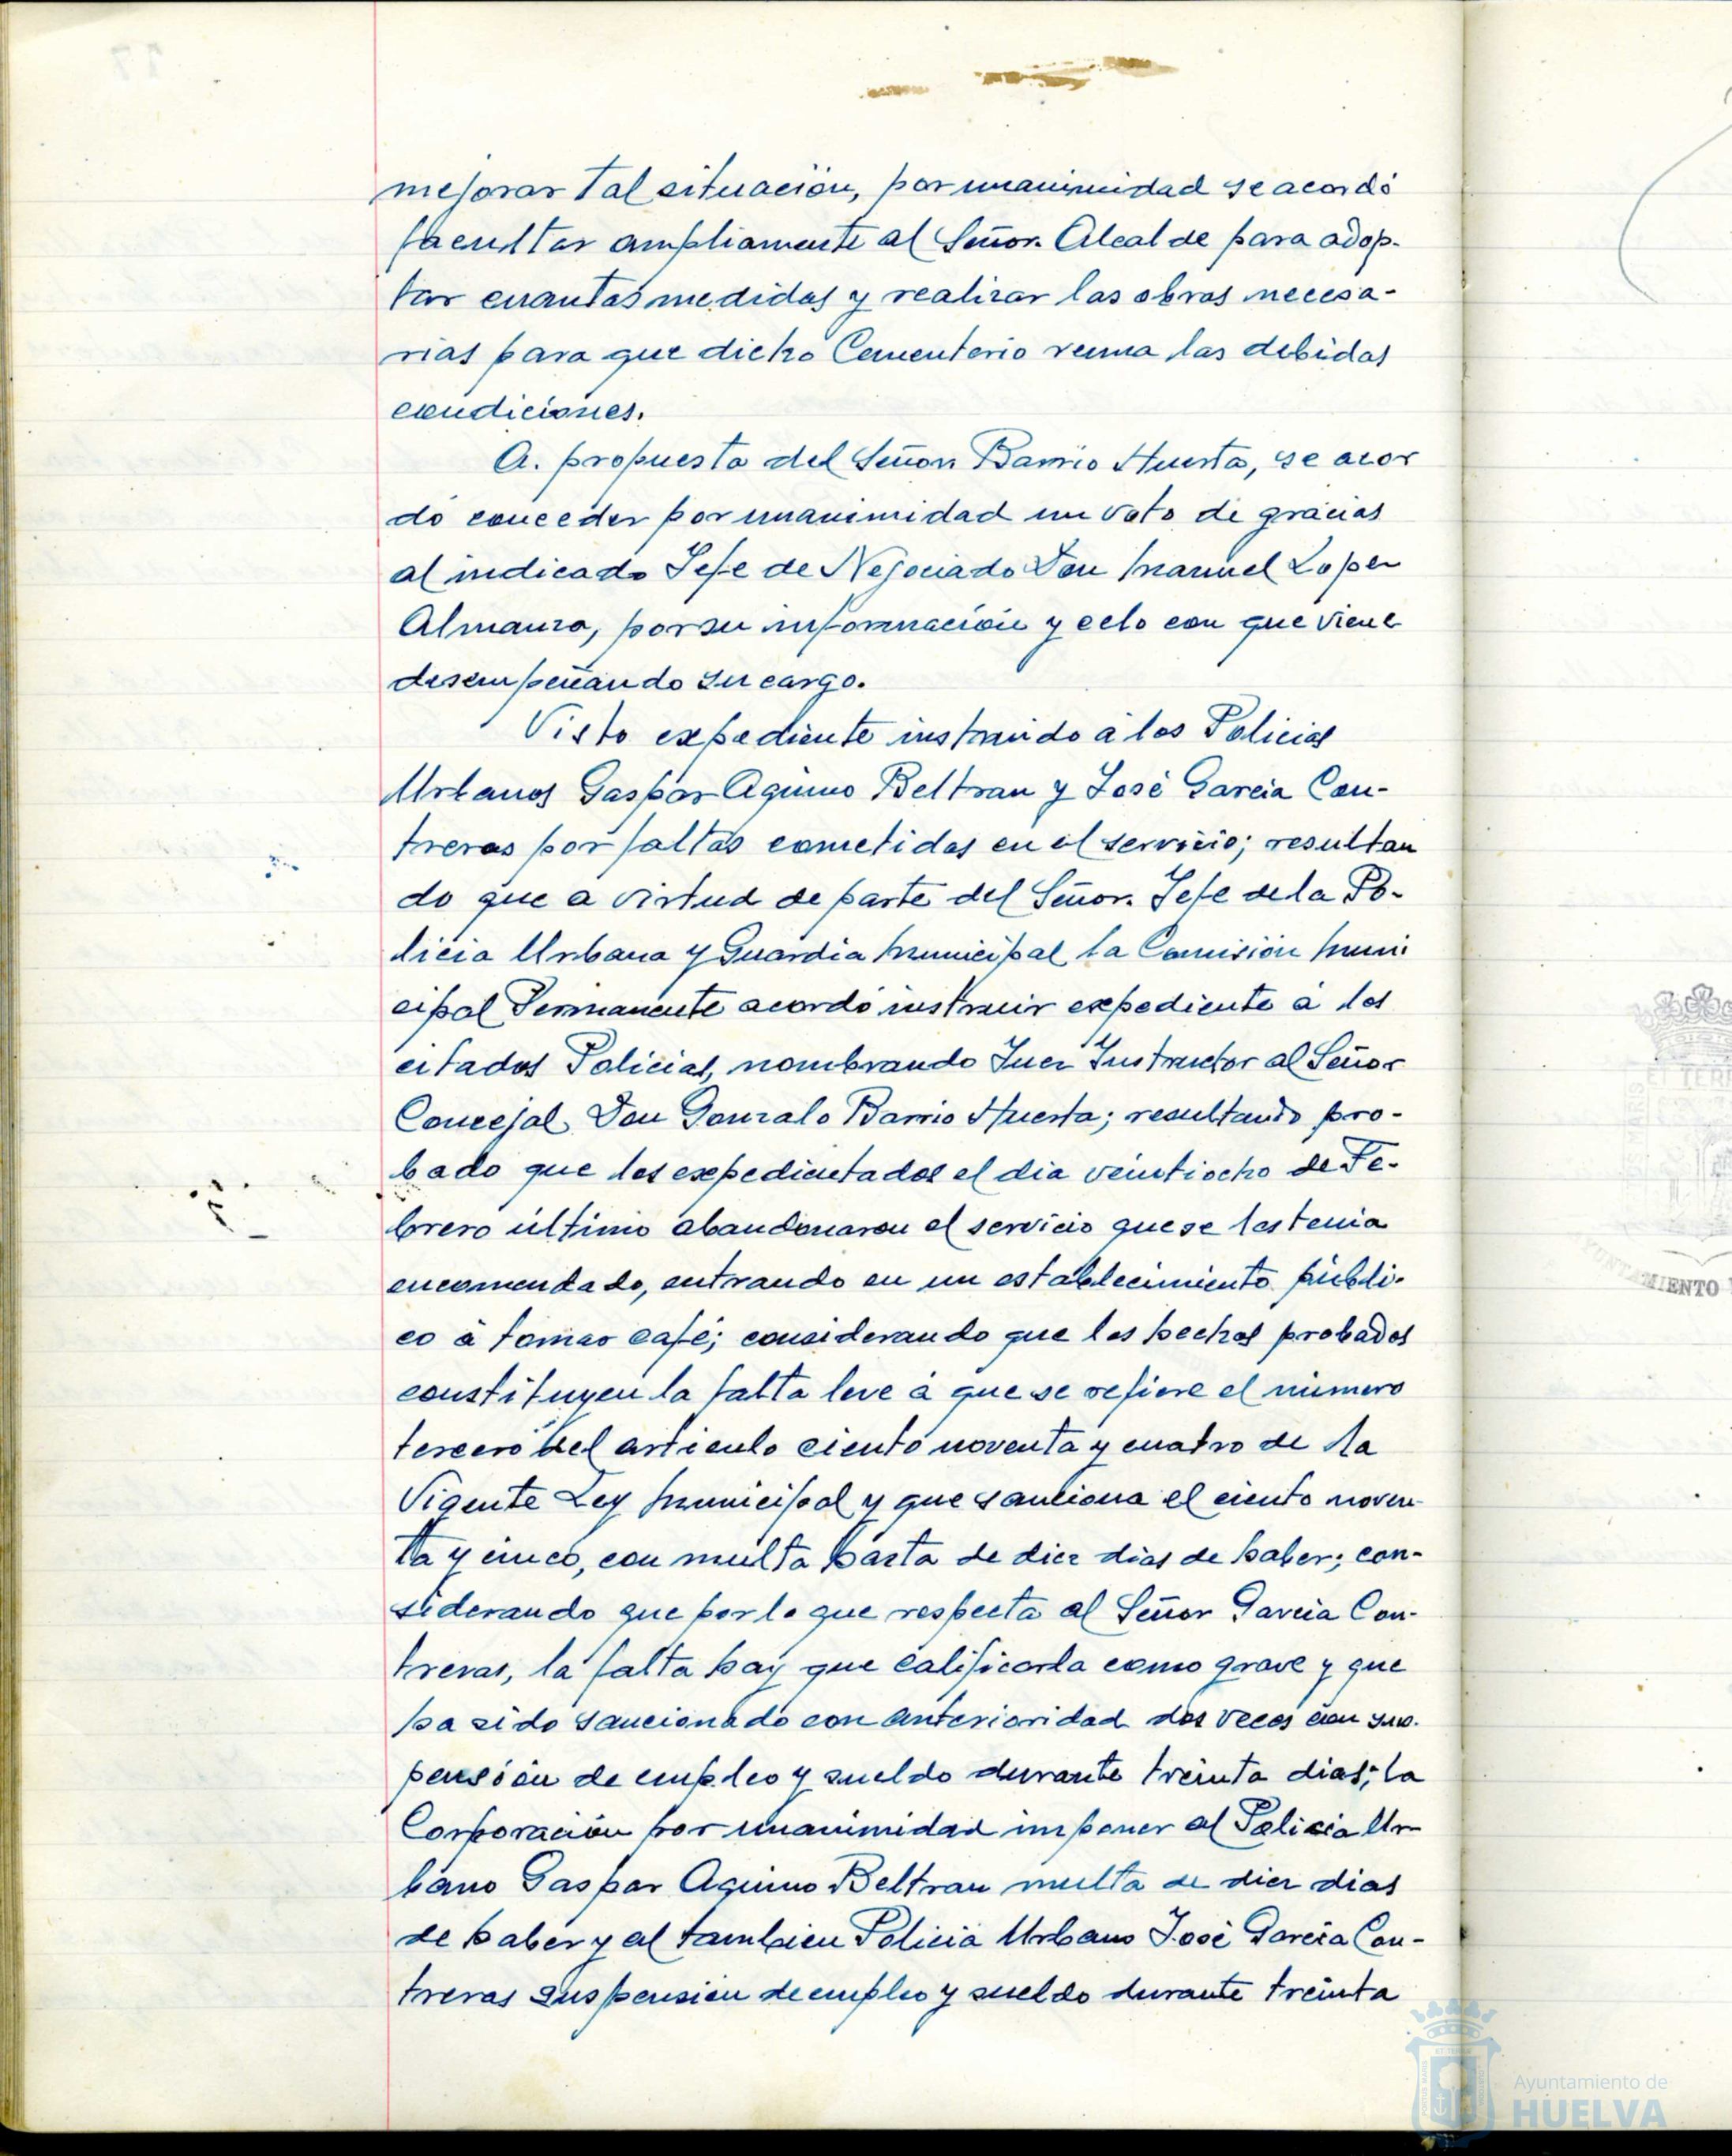 mejorar tal situación, por unanimidad se acordó
facultar ampliamente al Señor Alcalde para adop-
tar cuantas medidas y realizar las obras necesa-
rias para que dicho Cementerio reuna las debidas
condiciones.
A. propuesta del Señor Barrio Huerta, se acor
dó conceder por unanimidad un voto de gracias
al indicado Jefe de Negociado Don Manuel Lopez
Almanza, por su información y celo con que viene
desempeñando su cargo.
Visto expediente instruido á los Policias
Urbanos Gaspar Aquino Beltran y José Garcia Con-
treras por faltas cometidas en el servicio; resultan
do que a virtud de parte del Señor Jefe de la Po-
licia Urbana y Guardia Municipal la Comisión Muni
cipal Permanente acordó instruir expediente á los
citados Policias, nombrando Juez Instructor al Señor
Concejal Don Gonzalo Barrio Huerta; resultando pro-
bado que los expedientados el dia veintiocho de Fe-
brero último abandonaron el servicio que se les tenia
encomendado, entrando en un establecimiento públi-
co á tomar café; considerando que los hechos probados
constituyen la falta leve á que se refiere el número
tercero del articulo ciento noventa y cuatro de la
Vigente Ley Municipal y que sanciona el ciento noven-
ta y cinco, con multa hasta de diez dias de haber; con-
siderando que por lo que respecta al Señor Garcia Con-
treras, la falta hay que calificarla como grave y que
ha sido sancionado con anterioridad dos veces con sus-
pensión de empleo y sueldo durante treinta dias; la
Corporación por unanimidad imponer al Policia Ur-
bano Gaspar Aquino Beltran multa de diez dias
de haber y al tambien Policia Urbano José Garcia Con-
treras suspensión de empleo y sueldo durante treinta
Ayuntamiento de
HUELVA